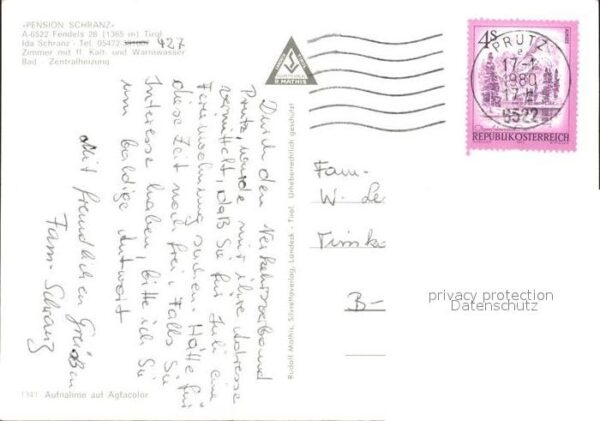 »PENSION SCHRANZ«
A-6522 Fendels 28 (1365 m) Tirol
Ida Schranz - Tel. 05472- 427
Zimmer mit fl. Kalt- und Warmwasser
Bad - Zentralheizung
Durch den Verkehrsverband
Prutz, wurde mir ihre Adresse
vermittelt, daß Sie für Juli eine
Ferienwohnung suchen. Hätte für
diese Zeit noch frei. Falls Sie
Interesse haben, bitte ich Sie
um baldige Antwort
Mit freundlichen Grüßen
Fam. Schranz
R. MATHIS
Rudolf Mathis, Silvrettaverlag, Landeck - Tirol. Urheberrechtlich geschützt
1341 Aufnahme auf Agfacolor
4S
REPUBLIK ÖSTERREICH
PRUTZ
17-1
1980
17
6522
Fam.
W. Le
Timk
B-
privacy protection
Datenschutz